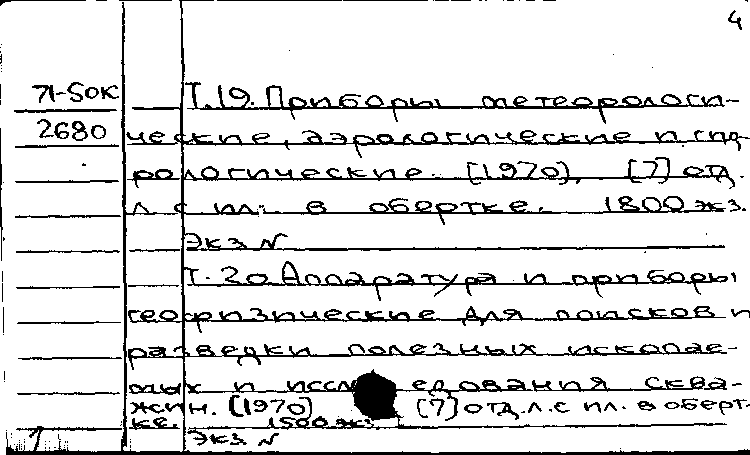 4
71-50К Т.19. Приборы метеорологи-
2680 ческие, аэрологические и гид-
рологические. [1970]. [7] отд.
л. с ил. в обертке. 1800 экз.
Экз. N
Т. 20. Аппаратура и приборы
геофизические для поисков и
разведки полезных ископае-
мых и исследования сква-
жин. [1970] [7] отд. л. с ил. в оберт-
ке. 1500 экз.
Экз. N